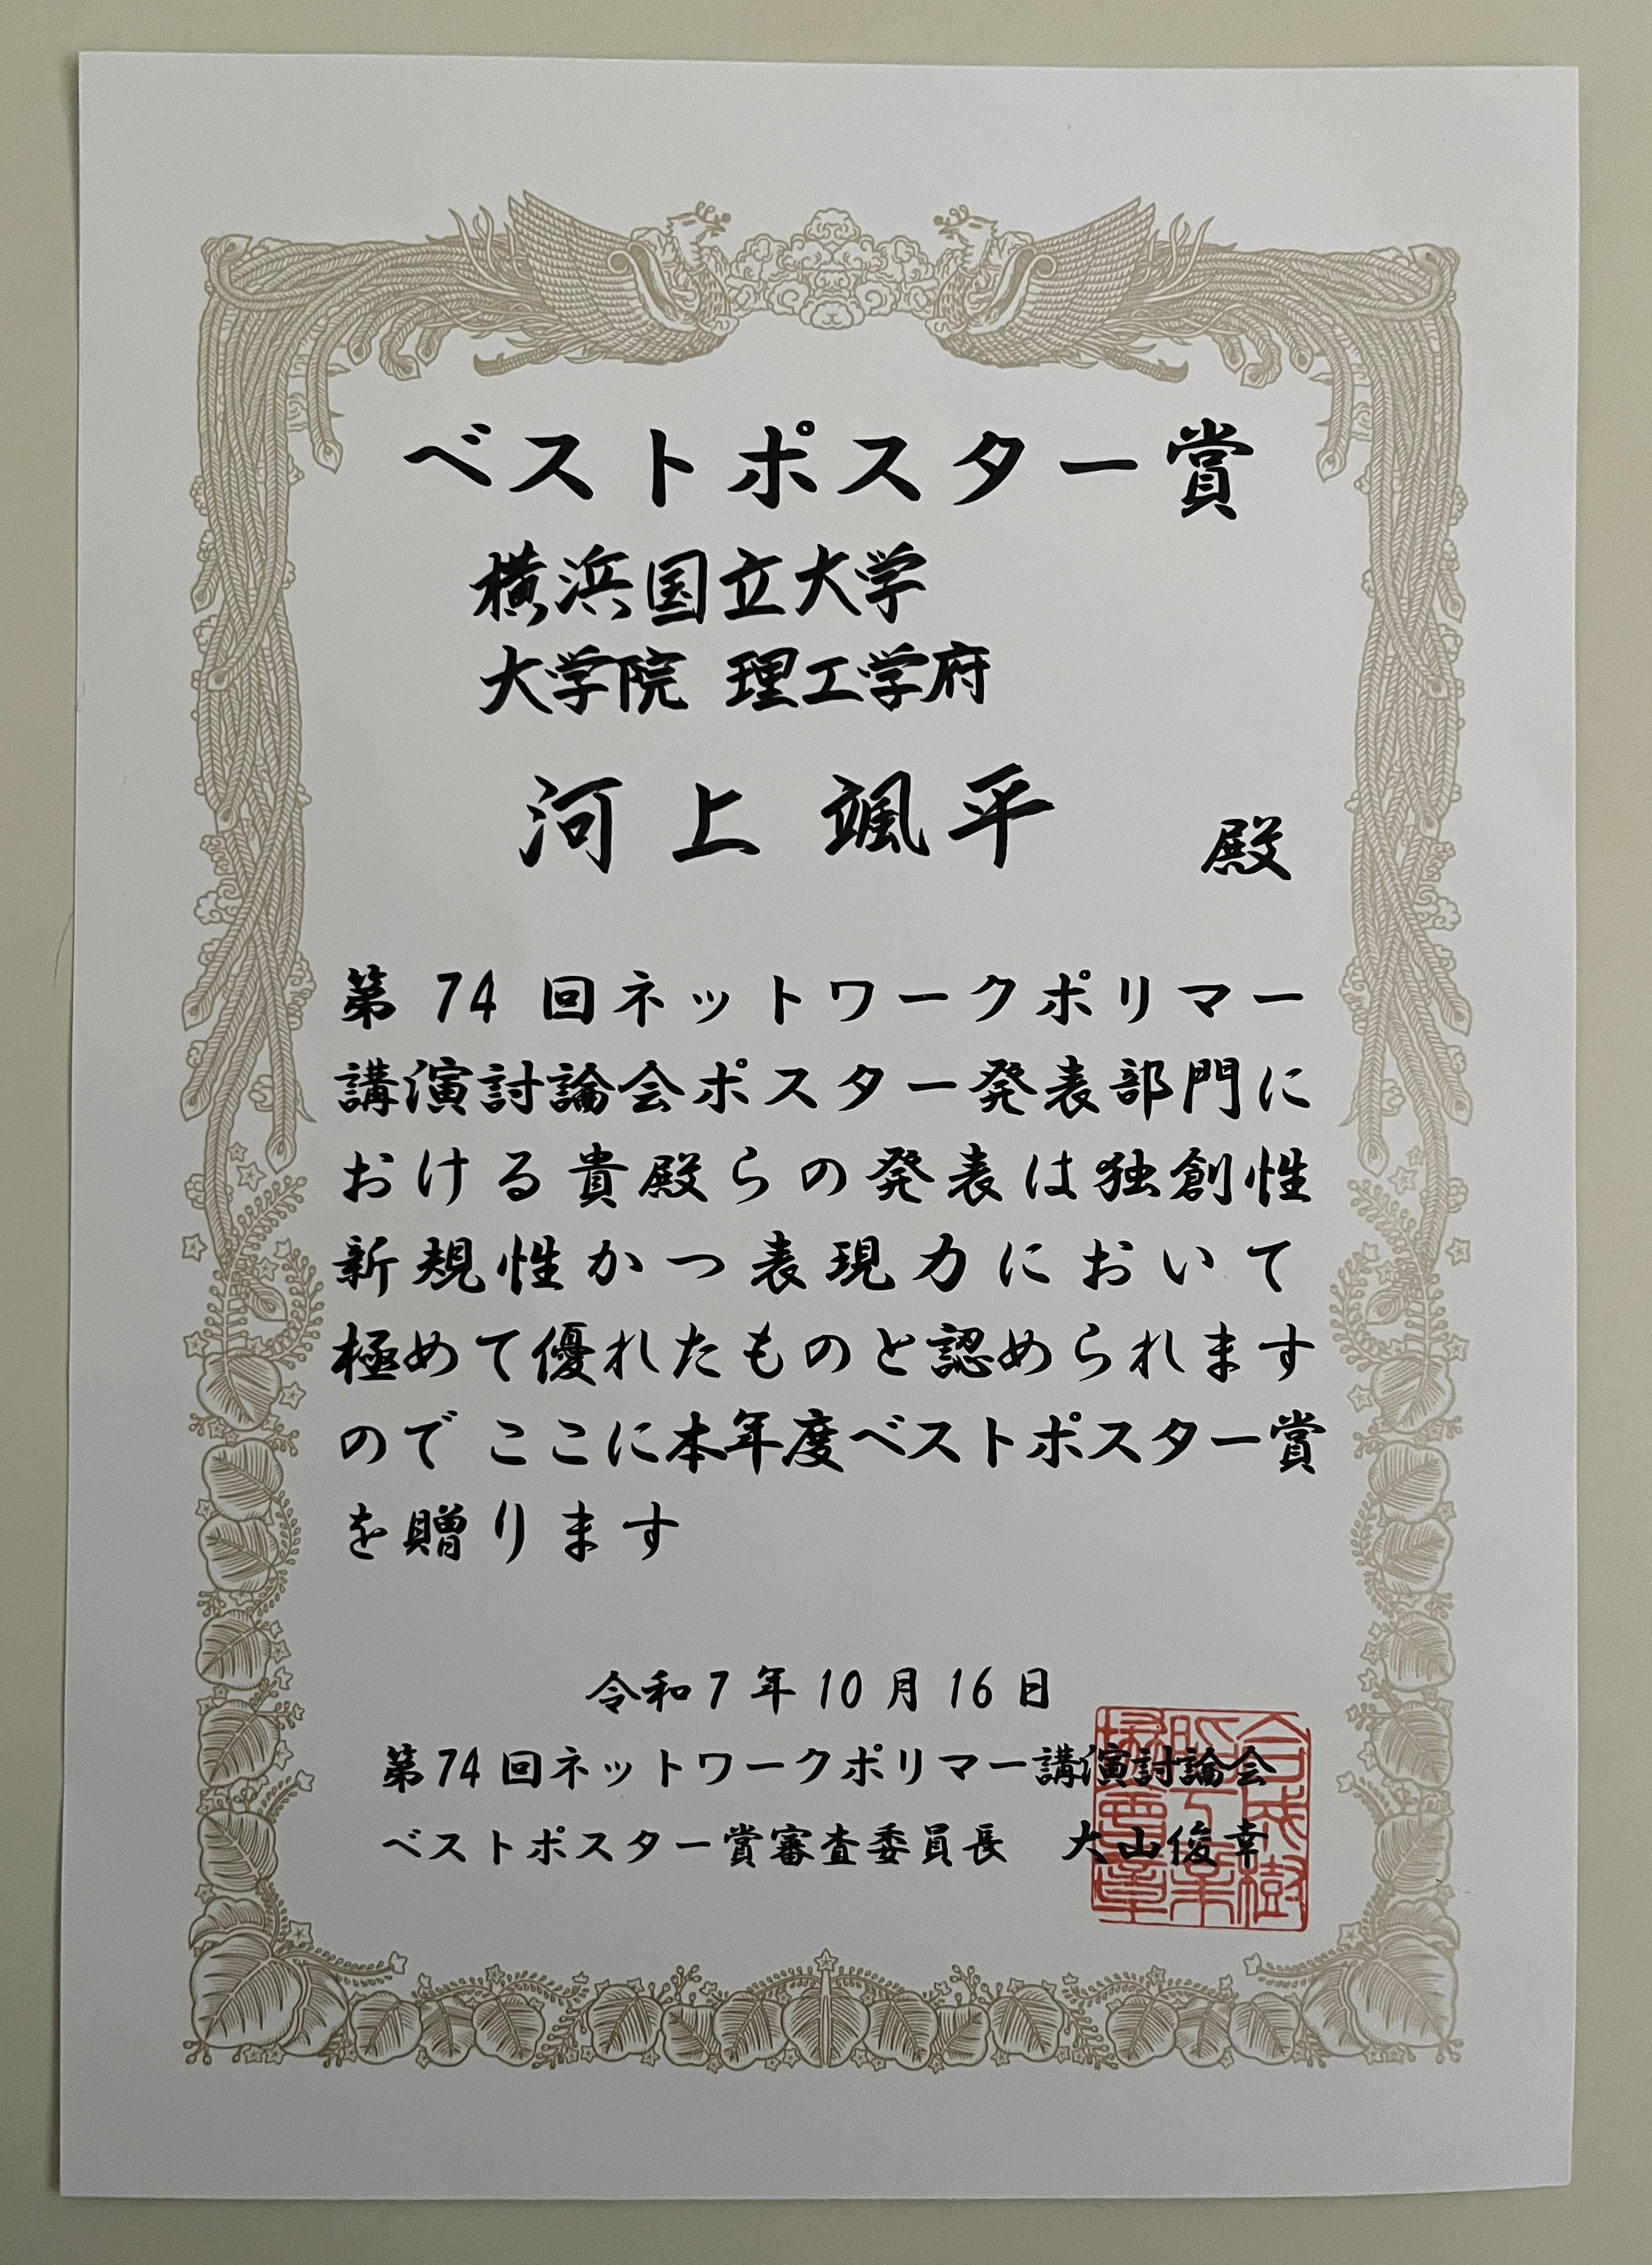 ベストポスター賞
横浜国立大学
大学院 理工学府
河上 颯平 殿
第 74 回ネットワークポリマー
講演討論会ポスター発表部門に
おける貴殿らの発表は独創性
新規性かつ表現力において
極めて優れたものと認められます
ので ここに本年度ベストポスター賞
を贈ります
令和7年10月16日
第74回ネットワークポリマー講演討論会
ベストポスター賞審査委員長 大山俊幸